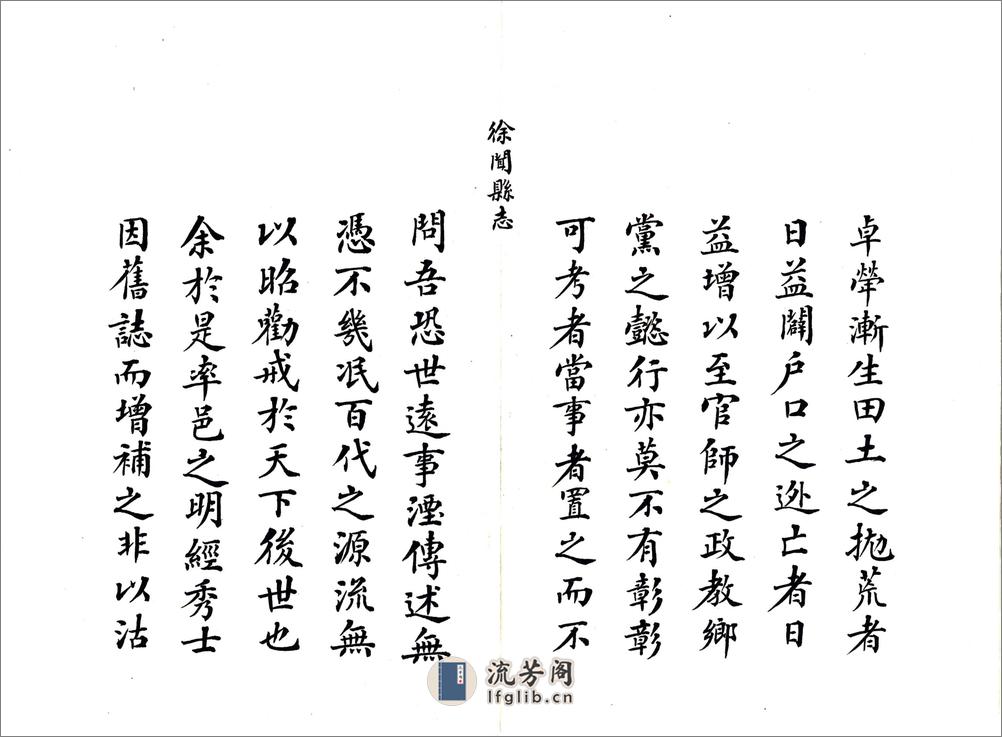 卓犖漸生田土之拋荒者
日益闢户口之逊亡者日
益增以至官師之政教鄉
黨之懿行亦莫不有彰彰
可考者當事者置之而不
徐聞縣志
問吾恐世遠事湮傳述無
憑不幾泯百代之源流無
以昭勸戒於天下後世也
余於是率邑之明經秀士
因舊誌而增補之非以沽
流芳阁
lfglib.cn